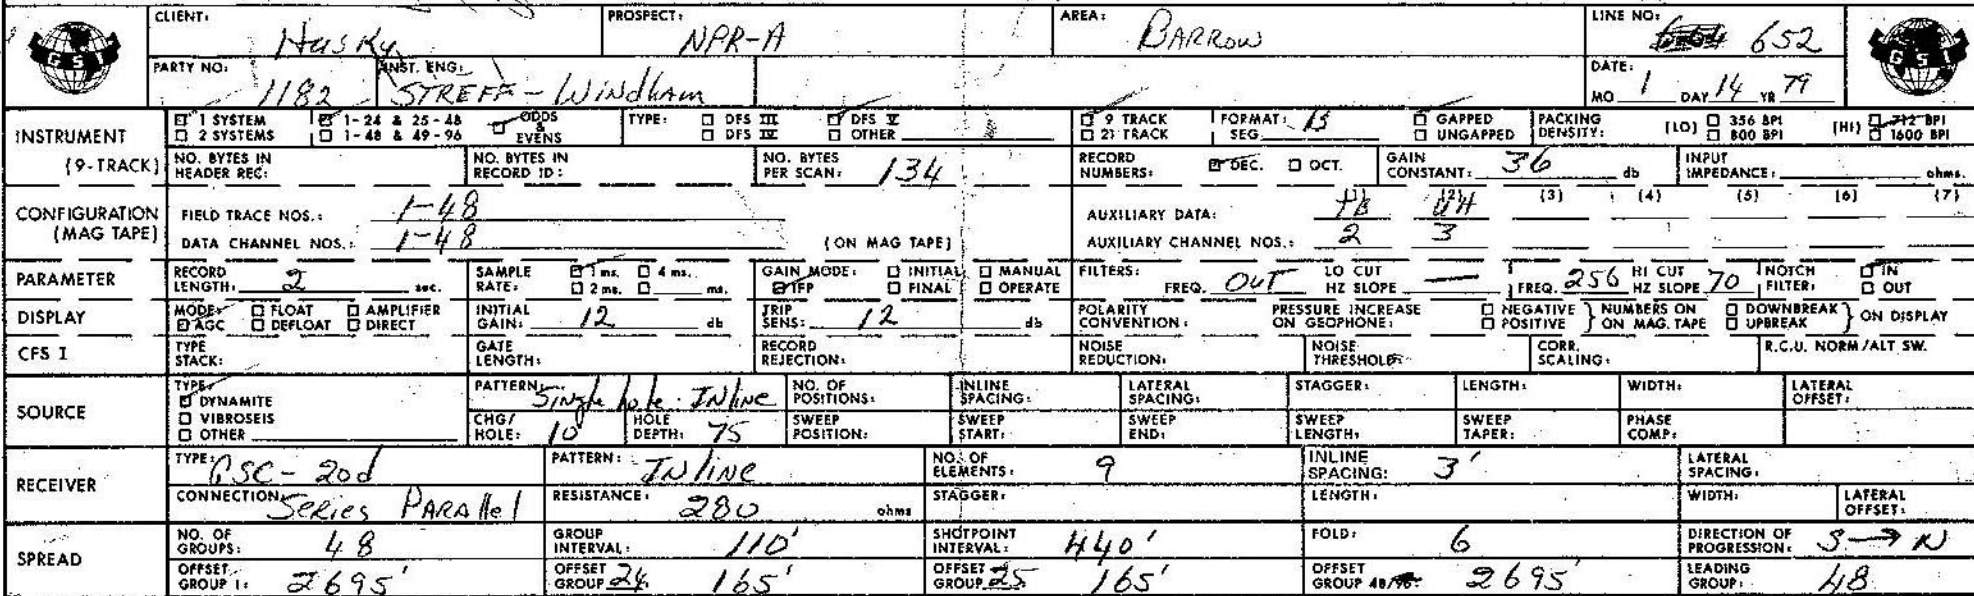 CLIENT: Husky PROSPECT: NPR-A AREA: BARROW LINE NO: 652
PARTY NO: 1182 INST. ENG: STREFF - WINDHAM DATE: MO 1 DAY 14 YR 79
GSI GSI
INSTRUMENT (9-TRACK)
1 SYSTEM 1-24 & 25-48 ODDS & EVENS TYPE: DFS III DFS V 9 TRACK FORMAT: SEG B GAPPED PACKING DENSITY: [LO] 356 BPI [HI] 712 BPI
2 SYSTEMS 1-48 & 49-96 DFS IV OTHER 21 TRACK UNGAPPED 800 BPI 1600 BPI
NO. BYTES IN HEADER REC: NO. BYTES IN RECORD ID: NO. BYTES PER SCAN: 134 RECORD NUMBERS: DEC. OCT. GAIN CONSTANT: 36 db INPUT IMPEDANCE: ohms.
CONFIGURATION (MAG TAPE)
FIELD TRACE NOS.: 1-48 AUXILIARY DATA: TB UH (2) (3) (4) (5) (6) (7)
DATA CHANNEL NOS.: 1-48 (ON MAG TAPE) AUXILIARY CHANNEL NOS.: 2 3
PARAMETER RECORD LENGTH: 2 sec. SAMPLE RATE: 1 ms. 4 ms. 2 ms. ms. GAIN MODE: INITIAL MANUAL IFP FINAL OPERATE FILTERS: FREQ. OUT LO CUT HZ SLOPE — FREQ. 256 HI CUT HZ SLOPE 70 NOTCH FILTER: IN OUT
DISPLAY MODE: FLOAT AMPLIFIER AGC DEFLOAT DIRECT INITIAL GAIN: 12 db TRIP SENS: 12 db POLARITY CONVENTION: PRESSURE INCREASE ON GEOPHONE: NEGATIVE POSITIVE NUMBERS ON ON MAG. TAPE DOWNBREAK UPBREAK ON DISPLAY
CFS I TYPE STACK: GATE LENGTH: RECORD REJECTION: NOISE REDUCTION: NOISE THRESHOLD: CORR. SCALING: R.C.U. NORM/ALT SW.
SOURCE TYPE: DYNAMITE VIBROSEIS OTHER
PATTERN: Single hole - INline NO. OF POSITIONS: INLINE SPACING: LATERAL SPACING: STAGGER: LENGTH: WIDTH: LATERAL OFFSET:
CHG/HOLE: 10 HOLE DEPTH: 75 SWEEP POSITION: SWEEP START: SWEEP END: SWEEP LENGTH: SWEEP TAPER: PHASE COMP:
RECEIVER TYPE: GSC-20d PATTERN: INline NO. OF ELEMENTS: 9 INLINE SPACING: 3' LATERAL SPACING:
CONNECTION: Series PARAllel RESISTANCE: 280 ohms STAGGER: LENGTH: WIDTH: LATERAL OFFSET:
SPREAD NO. OF GROUPS: 48 GROUP INTERVAL: 110' SHOTPOINT INTERVAL: 440' FOLD: 6 DIRECTION OF PROGRESSION: S → N
OFFSET GROUP 1: 2695' OFFSET GROUP 24: 165' OFFSET GROUP 25 165' OFFSET GROUP 48/96: 2695' LEADING GROUP: 48